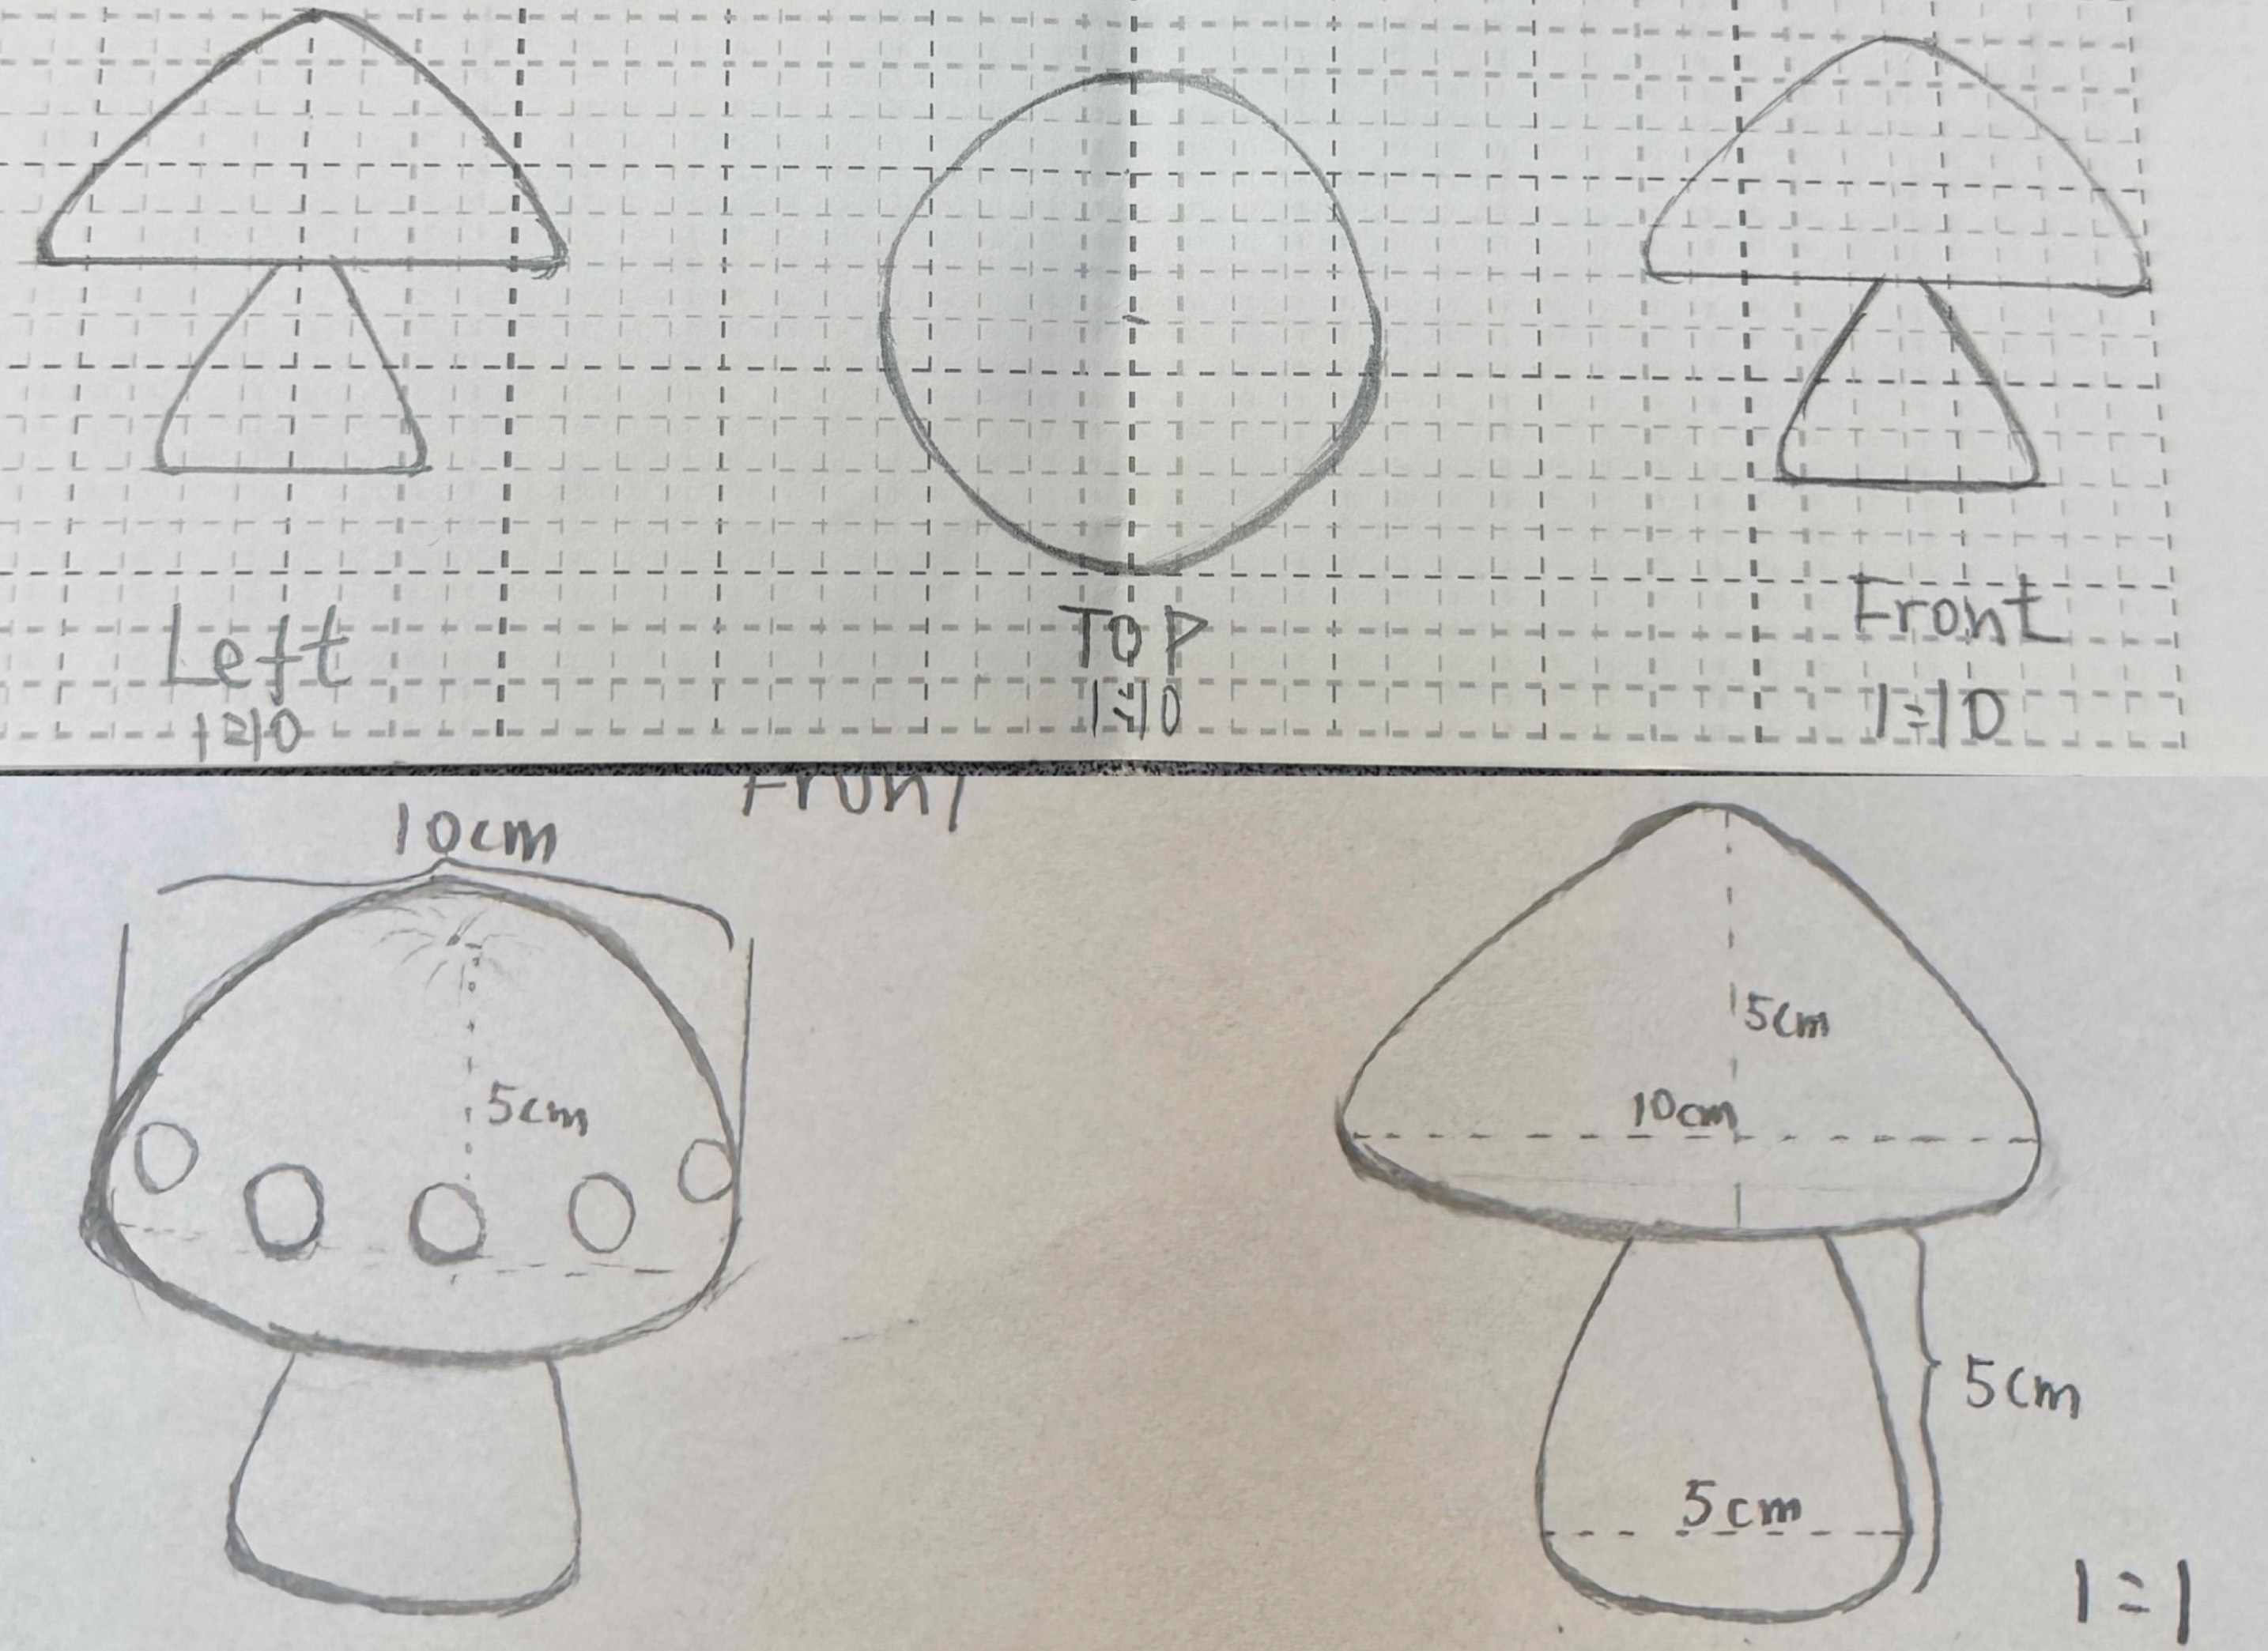 Left
1:10
TOP
1:10
Front
1:10
Front
10cm
5cm
5cm
10cm
5cm
5cm
1:1